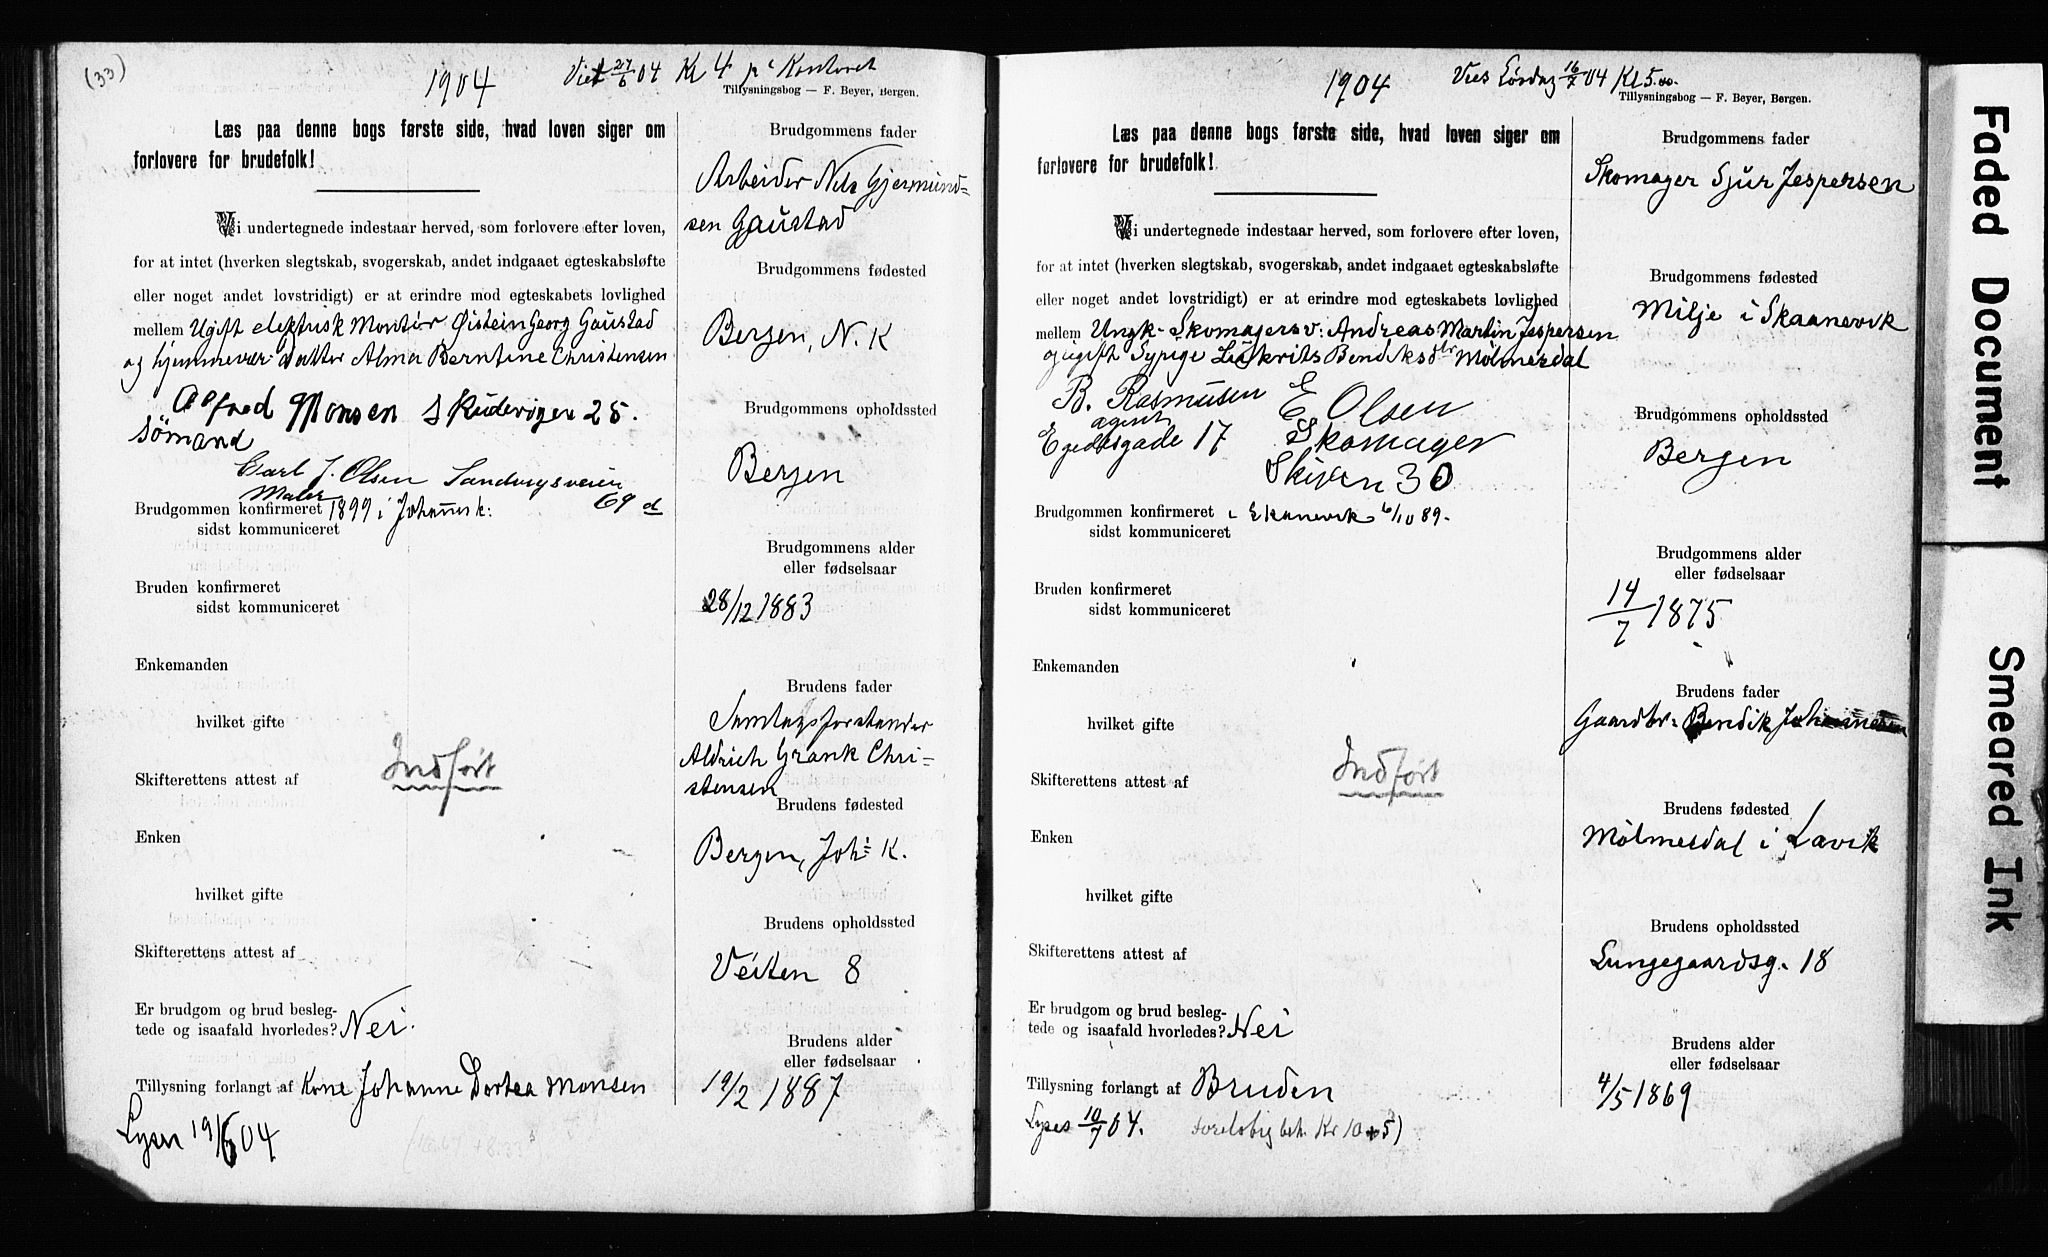 (33)
1904
Viet 27/6 04 Kl 4 på Kontoret
Tillysningsbog — F. Beyer, Bergen.
Læs paa denne bogs første side, hvad loven siger om
forlovere for brudefolk!
Vi undertegnede indestaar herved, som forlovere efter loven,
for at intet (hverken slegtskab, svogerskab, andet indgaaet egteskabsløfte
eller noget andet lovstridigt) er at erindre mod egteskabets lovlighed
mellem Ugift elektrisk Montør Øistein Georg Gaustad
og hjemmevær: datter Alma Berntine Christensen
Alfred Monsen Skudevigen 25.
Sömand
Carl J. Olsen Sandvigsveien
Maler 69 d
Brudgommen konfirmeret 1899 i Johannesk:
sidst kommuniceret
Bruden konfirmeret
sidst kommuniceret
Enkemanden
hvilket gifte
Indført
Skifterettens attest af
Enken
hvilket gifte
Skifterettens attest af
Er brudgom og brud besleg-
tede og isaafald hvorledes? Nei.
Tillysning forlangt af Kone Johanne Dortea Monsen
Lyser 19/6 04
Brudgommens fader
Arbeider Nils Gjermund-
sen Gaustad
Brudgommens fødested
Bergen, N. K
Brudgommens opholdssted
Bergen
Brudgommens alder
eller fødselsaar
28/12 1883
Brudens fader
Samlagsforstander
Aldrich Grank Chri-
stensen
Brudens fødested
Bergen, Joh: K.
Brudens opholdssted
Veiten 8
Brudens alder
eller fødselsaar
19/2 1887
1904
Vies Lørdag 16/7 04 Kl 5.00.
Tillysningsbog — F. Beyer, Bergen.
Læs paa denne bogs første side, hvad loven siger om
forlovere for brudefolk!
Vi undertegnede indestaar herved, som forlovere efter loven,
for at intet (hverken slegtskab, svogerskab, andet indgaaet egteskabsløfte
eller noget andet lovstridigt) er at erindre mod egteskabets lovlighed
mellem Ungk. Skomagersv: Andreas Martin Jespersen
og ugift Sypige Bendiksdtr Mølmesdal
B. Rasmusen E Olsen
agent Skomager
Egedesgade 17 Skiven 30
Brudgommen konfirmeret i Skanevik 6/10 89.
sidst kommuniceret
Bruden konfirmeret
sidst kommuniceret
Enkemanden
hvilket gifte
Indført
Skifterettens attest af
Enken
hvilket gifte
Skifterettens attest af
Er brudgom og brud besleg-
tede og isaafald hvorledes? Nei
Tillysning forlangt af Bruden
Lyses 10/7 04. foreløbig bet. Kr 10 + 5)
Brudgommens fader
Skomager Sjur Jespersen
Brudgommens fødested
Milje i Skaanevik
Brudgommens opholdssted
Bergen
Brudgommens alder
eller fødselsaar
14/7 1875
Brudens fader
Gaardbr: Bendik Johannesen
Brudens fødested
Mølmesdal i Lavik
Brudens opholdssted
Lungegaardsg. 18
Brudens alder
eller fødselsaar
4/5 1869
Faded Document
Smeared Ink